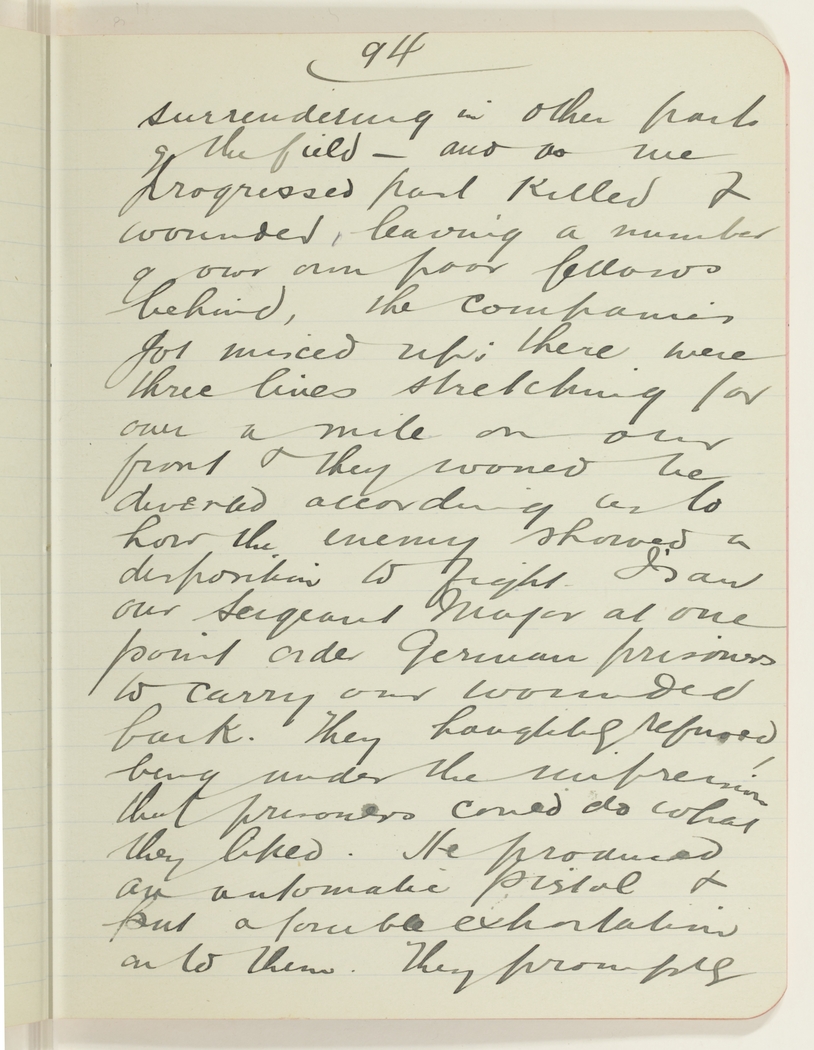 94
surrendering in other parts
of the field — and as we
progressed past killed &
wounded, leaving a number
of our own poor fellows
behind, the companies
got mixed up; there were
three lines stretching for
over a mile on our
front & they would be
diverted according as to
how the enemy showed a
disposition to fight. I saw
our Sergeant Major at one
point order German prisoners
to carry our wounded
back. They haughtily refused,
being under the impression
that prisoners could do what
they liked. He produced
an automatic pistol &
put a forcible exhortation
on to them. They promptly